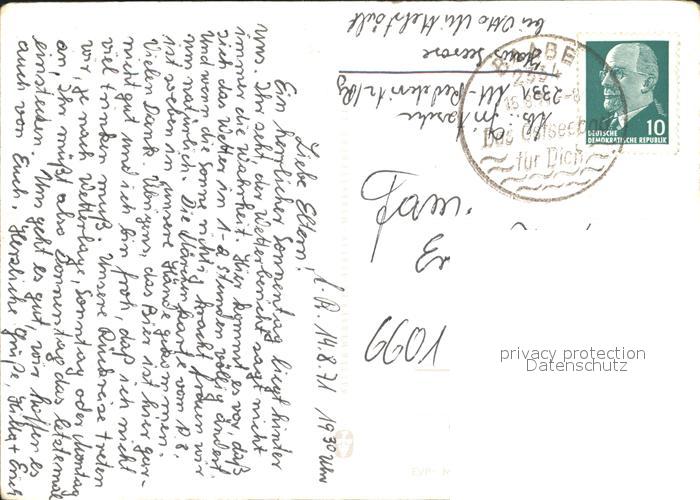 A. R. 14.8.71 19 30 Uhr
Liebe Eltern!
Ein herrlicher Sonnentag liegt hinter
uns. Ihr seht, der Wetterbericht sagt nicht
immer die Wahrheit. Hier kommt es vor, daß
sich das Wetter in 1-2 Stunden völlig ändert.
Und wenn die Sonne richtig knackt freun wir
uns natürlich. Die Karte vom 10. 8.
ist soeben in unsere Hände gekommen.
Vielen Dank. Übrigens, das Bier ist hier gar-
nicht gut und ich bin froh, daß ich nicht
viel trinken muß. Unsere Rückreise treten
wir, je nach Wetterlage, Sonntag oder Montag
an, Ihr müßt also Donnerstag das letztemal
einstecken. Uns geht es gut, wir hoffen es
auch von Euch. Herzliche Grüße,
2331 Alt-Reddevitz/Rg
Haus Seerose
bei Otto Mittelstädt
Fam.
1099
Das Ostseebad
für Dich
10
DEUTSCHE
DEMOKRATISCHE REPUBLIK
privacy protection
Datenschutz